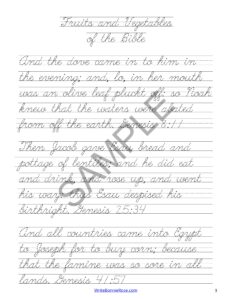 Fruits and Vegetables
of the Bible
And the dove came in to him in
the evening; and, lo, in her mouth
was an olive leaf pluckt off: so Noah
knew that the waters were abated
from off the earth. Genesis 8:11
Then Jacob gave Esau bread and
pottage of lentiles; and he did eat
and drink, and rose up, and went
his way: thus Esau despised his
birthright. Genesis 25:34
And all countries came into Egypt
to Joseph for to buy corn; because
that the famine was so sore in all
lands. Genesis 41:57
SAMPLE